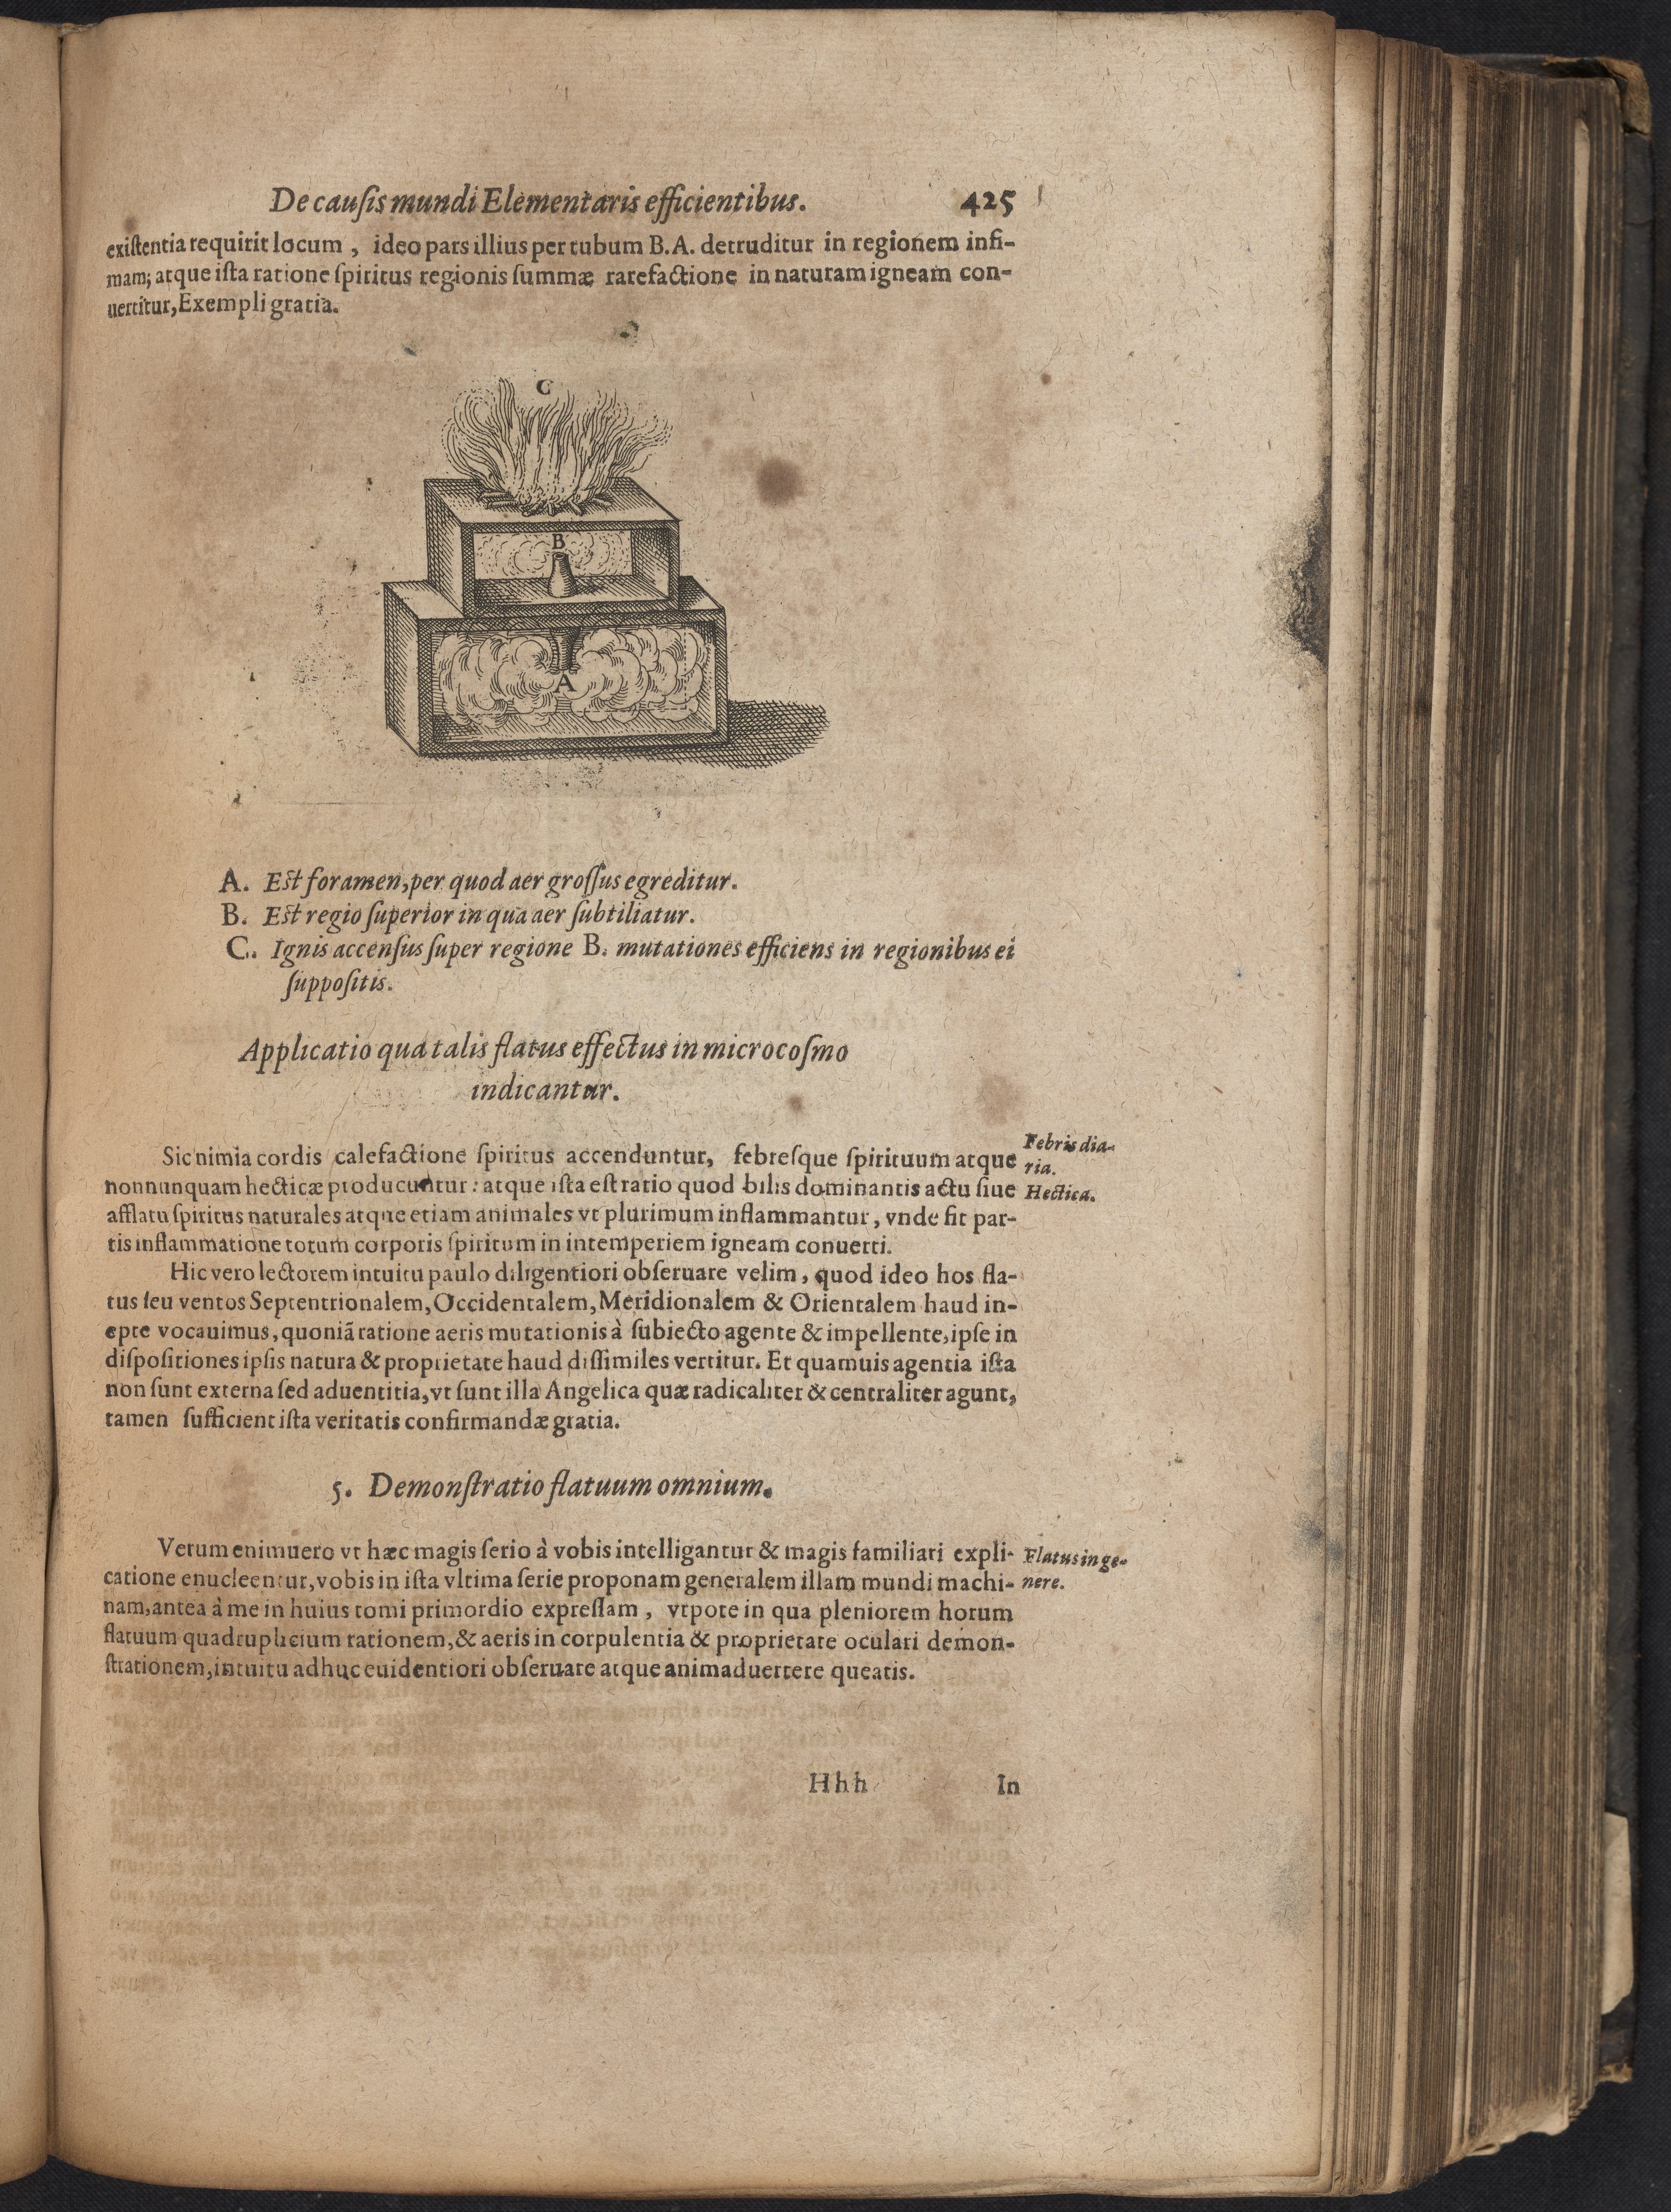 De cauſis mundi Elementaris efficientibus. 425
exiſtentia requirit locum, ideo pars illius per tubum B.A. detruditur in regionem infi-
mam; atque iſta ratione ſpiritus regionis ſummæ rarefactione in naturam igneam con-
uertitur, Exempli gratia.
C
B
A
A. Eſt foramen, per quod aer groſſus egreditur.
B. Eſt regio ſuperior in qua aer ſubtiliatur.
C. Ignis accenſus ſuper regione B. mutationes efficiens in regionibus ei
ſuppoſitis.
Applicatio qua talis flatus effectus in microcoſmo
indicantur.
Sic nimia cordis calefactione ſpiritus accenduntur, febreſque ſpirituum atque
Febris dia-
ria.
nonnunquam hecticæ producuntur: atque iſta eſt ratio quod bilis dominantis actu ſiue
Hectica.
afflatu ſpiritus naturales atque etiam animales vt plurimum inflammantur, vnde fit par-
tis inflammatione totum corporis ſpiritum in intemperiem igneam conuerti.
Hic vero lectorem intuitu paulo diligentiori obſeruare velim, quod ideo hos fla-
tus ſeu ventos Septentrionalem, Occidentalem, Meridionalem & Orientalem haud in-
epte vocauimus, quoniã ratione aeris mutationis à ſubiecto agente & impellente, ipſe in
diſpoſitiones ipſis natura & proprietate haud diſſimiles vertitur. Et quamuis agentia iſta
non ſunt externa ſed aduentitia, vt ſunt illa Angelica quæ radicaliter & centraliter agunt,
tamen ſufficient iſta veritatis confirmandæ gratia.
5. Demonſtratio flatuum omnium.
Verum enimuero vt hæc magis ſerio à vobis intelligantur & magis familiari expli-
Flatus in ge-
nere.
catione enucleentur, vobis in iſta vltima ſerie proponam generalem illam mundi machi-
nam, antea à me in huius tomi primordio expreſſam, vtpote in qua pleniorem horum
flatuum quadruplicium rationem, & aeris in corpulentia & proprietate oculari demon-
ſtrationem, intuitu adhuc euidentiori obſeruare atque animaduertere queatis.
Hhh In